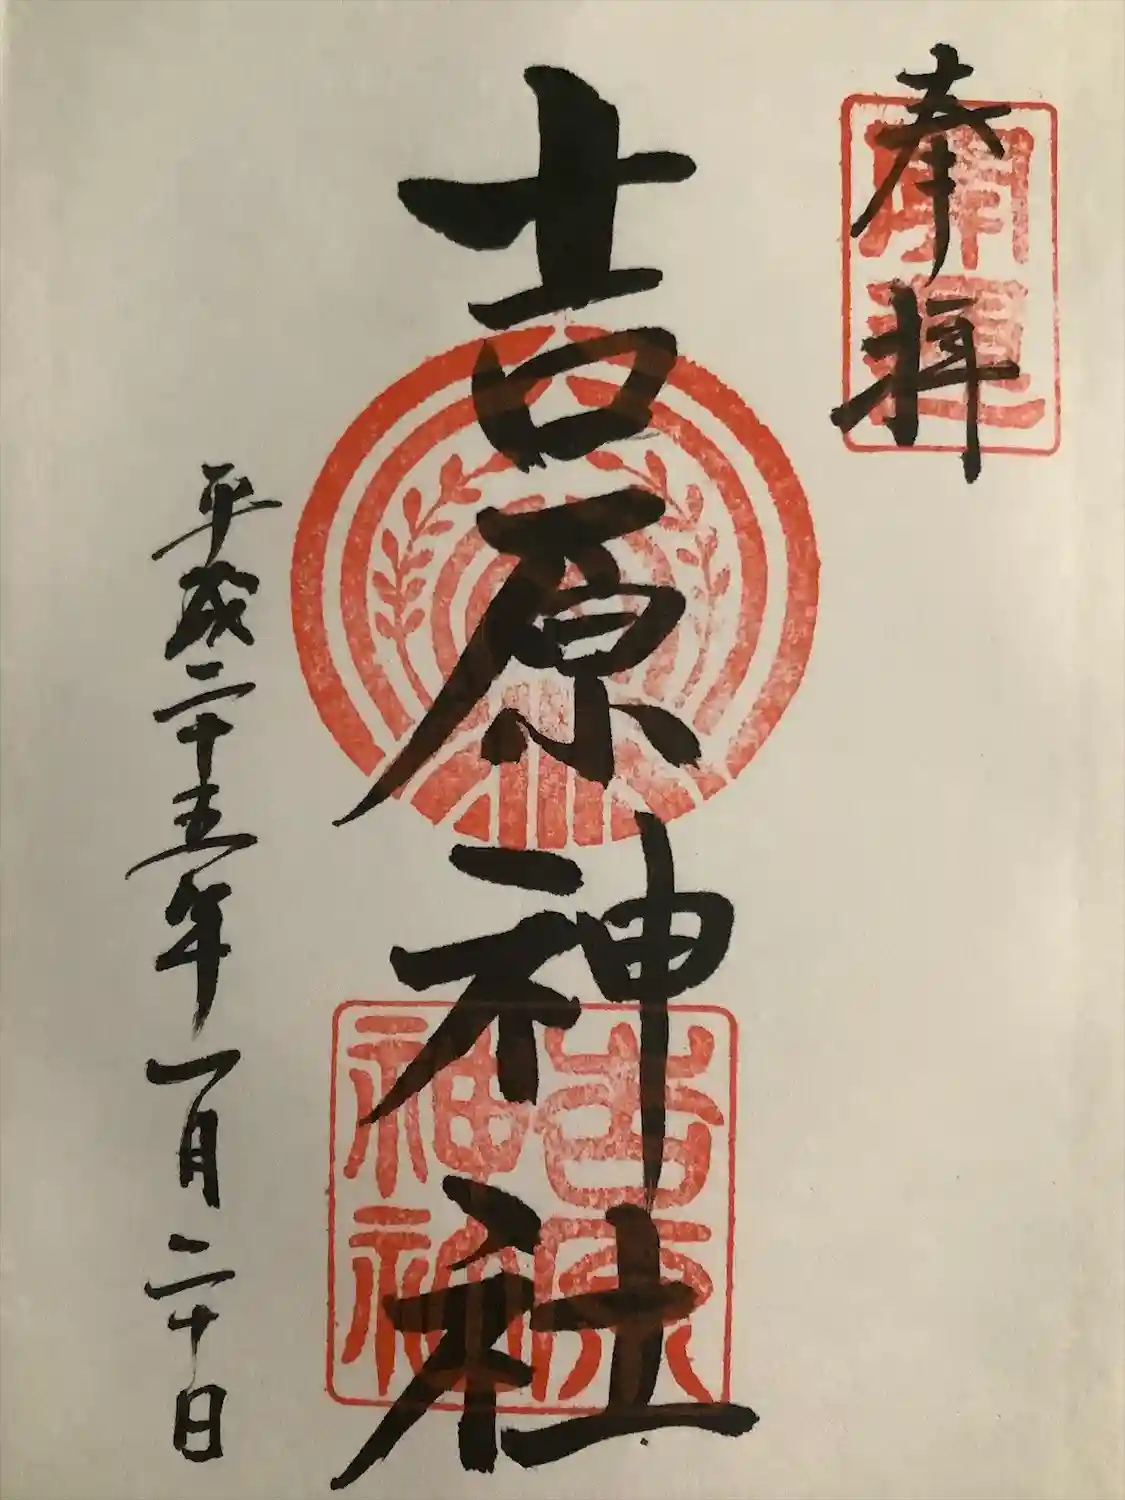 奉拝
開運
吉原神社
吉原
神社
平成二十五年一月二十日